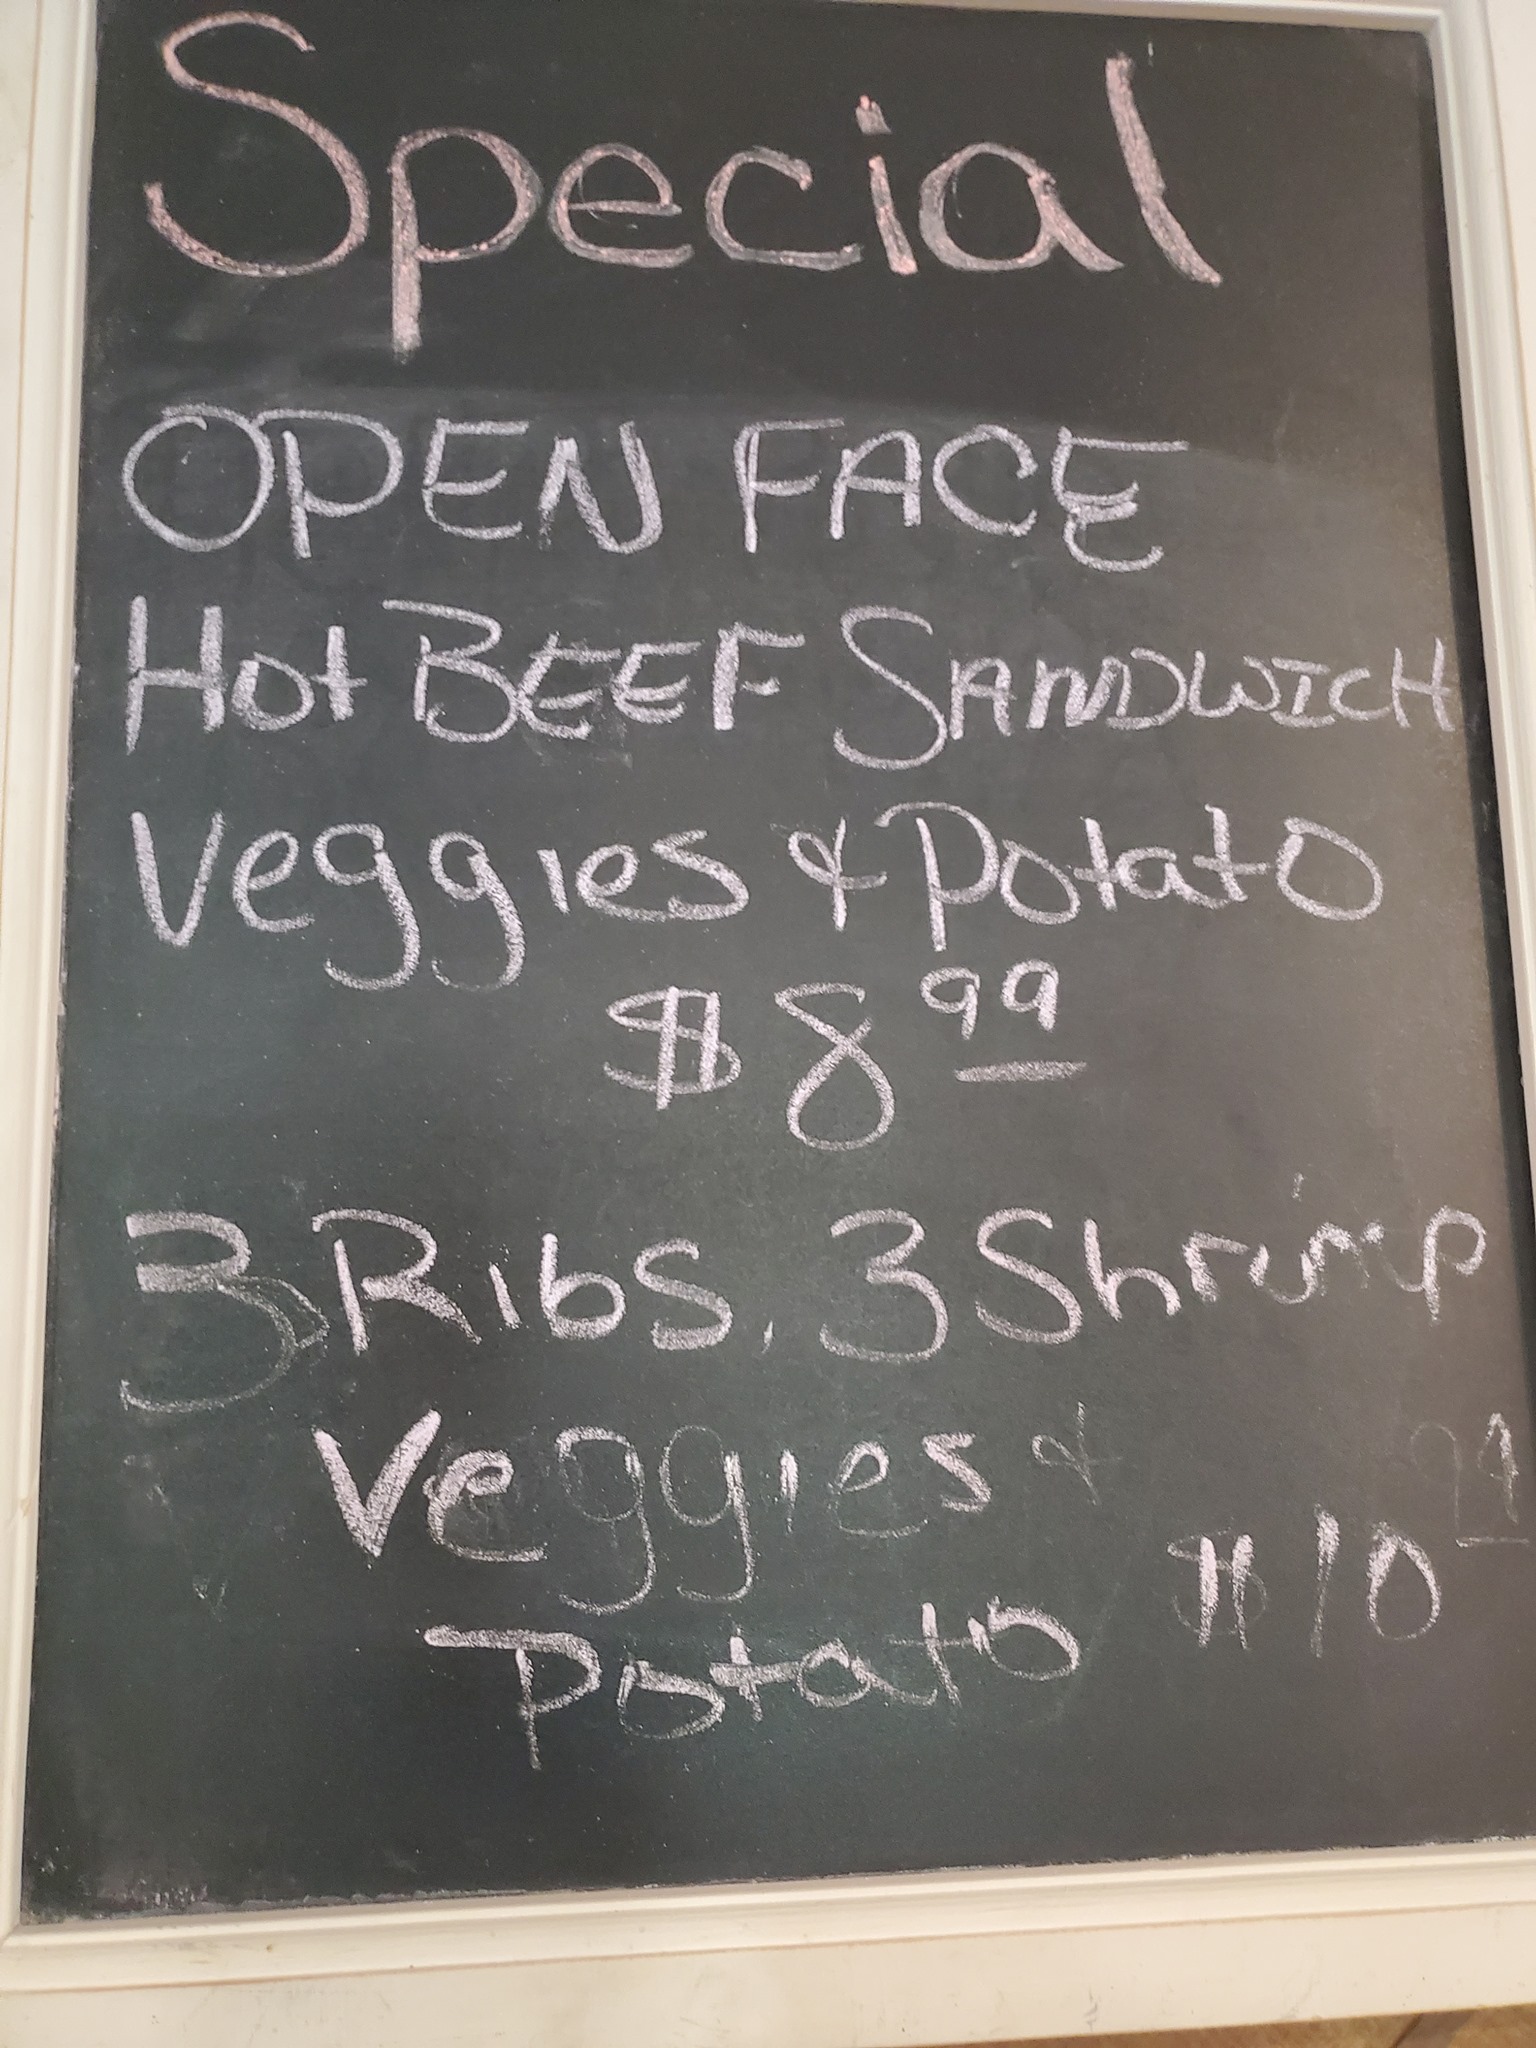 Special
OPEN FACE
Hot BEEF SANDWICH
Veggies & Potato
$8.99
3 Ribs, 3 Shrimp
Veggies &
Potato $10.99